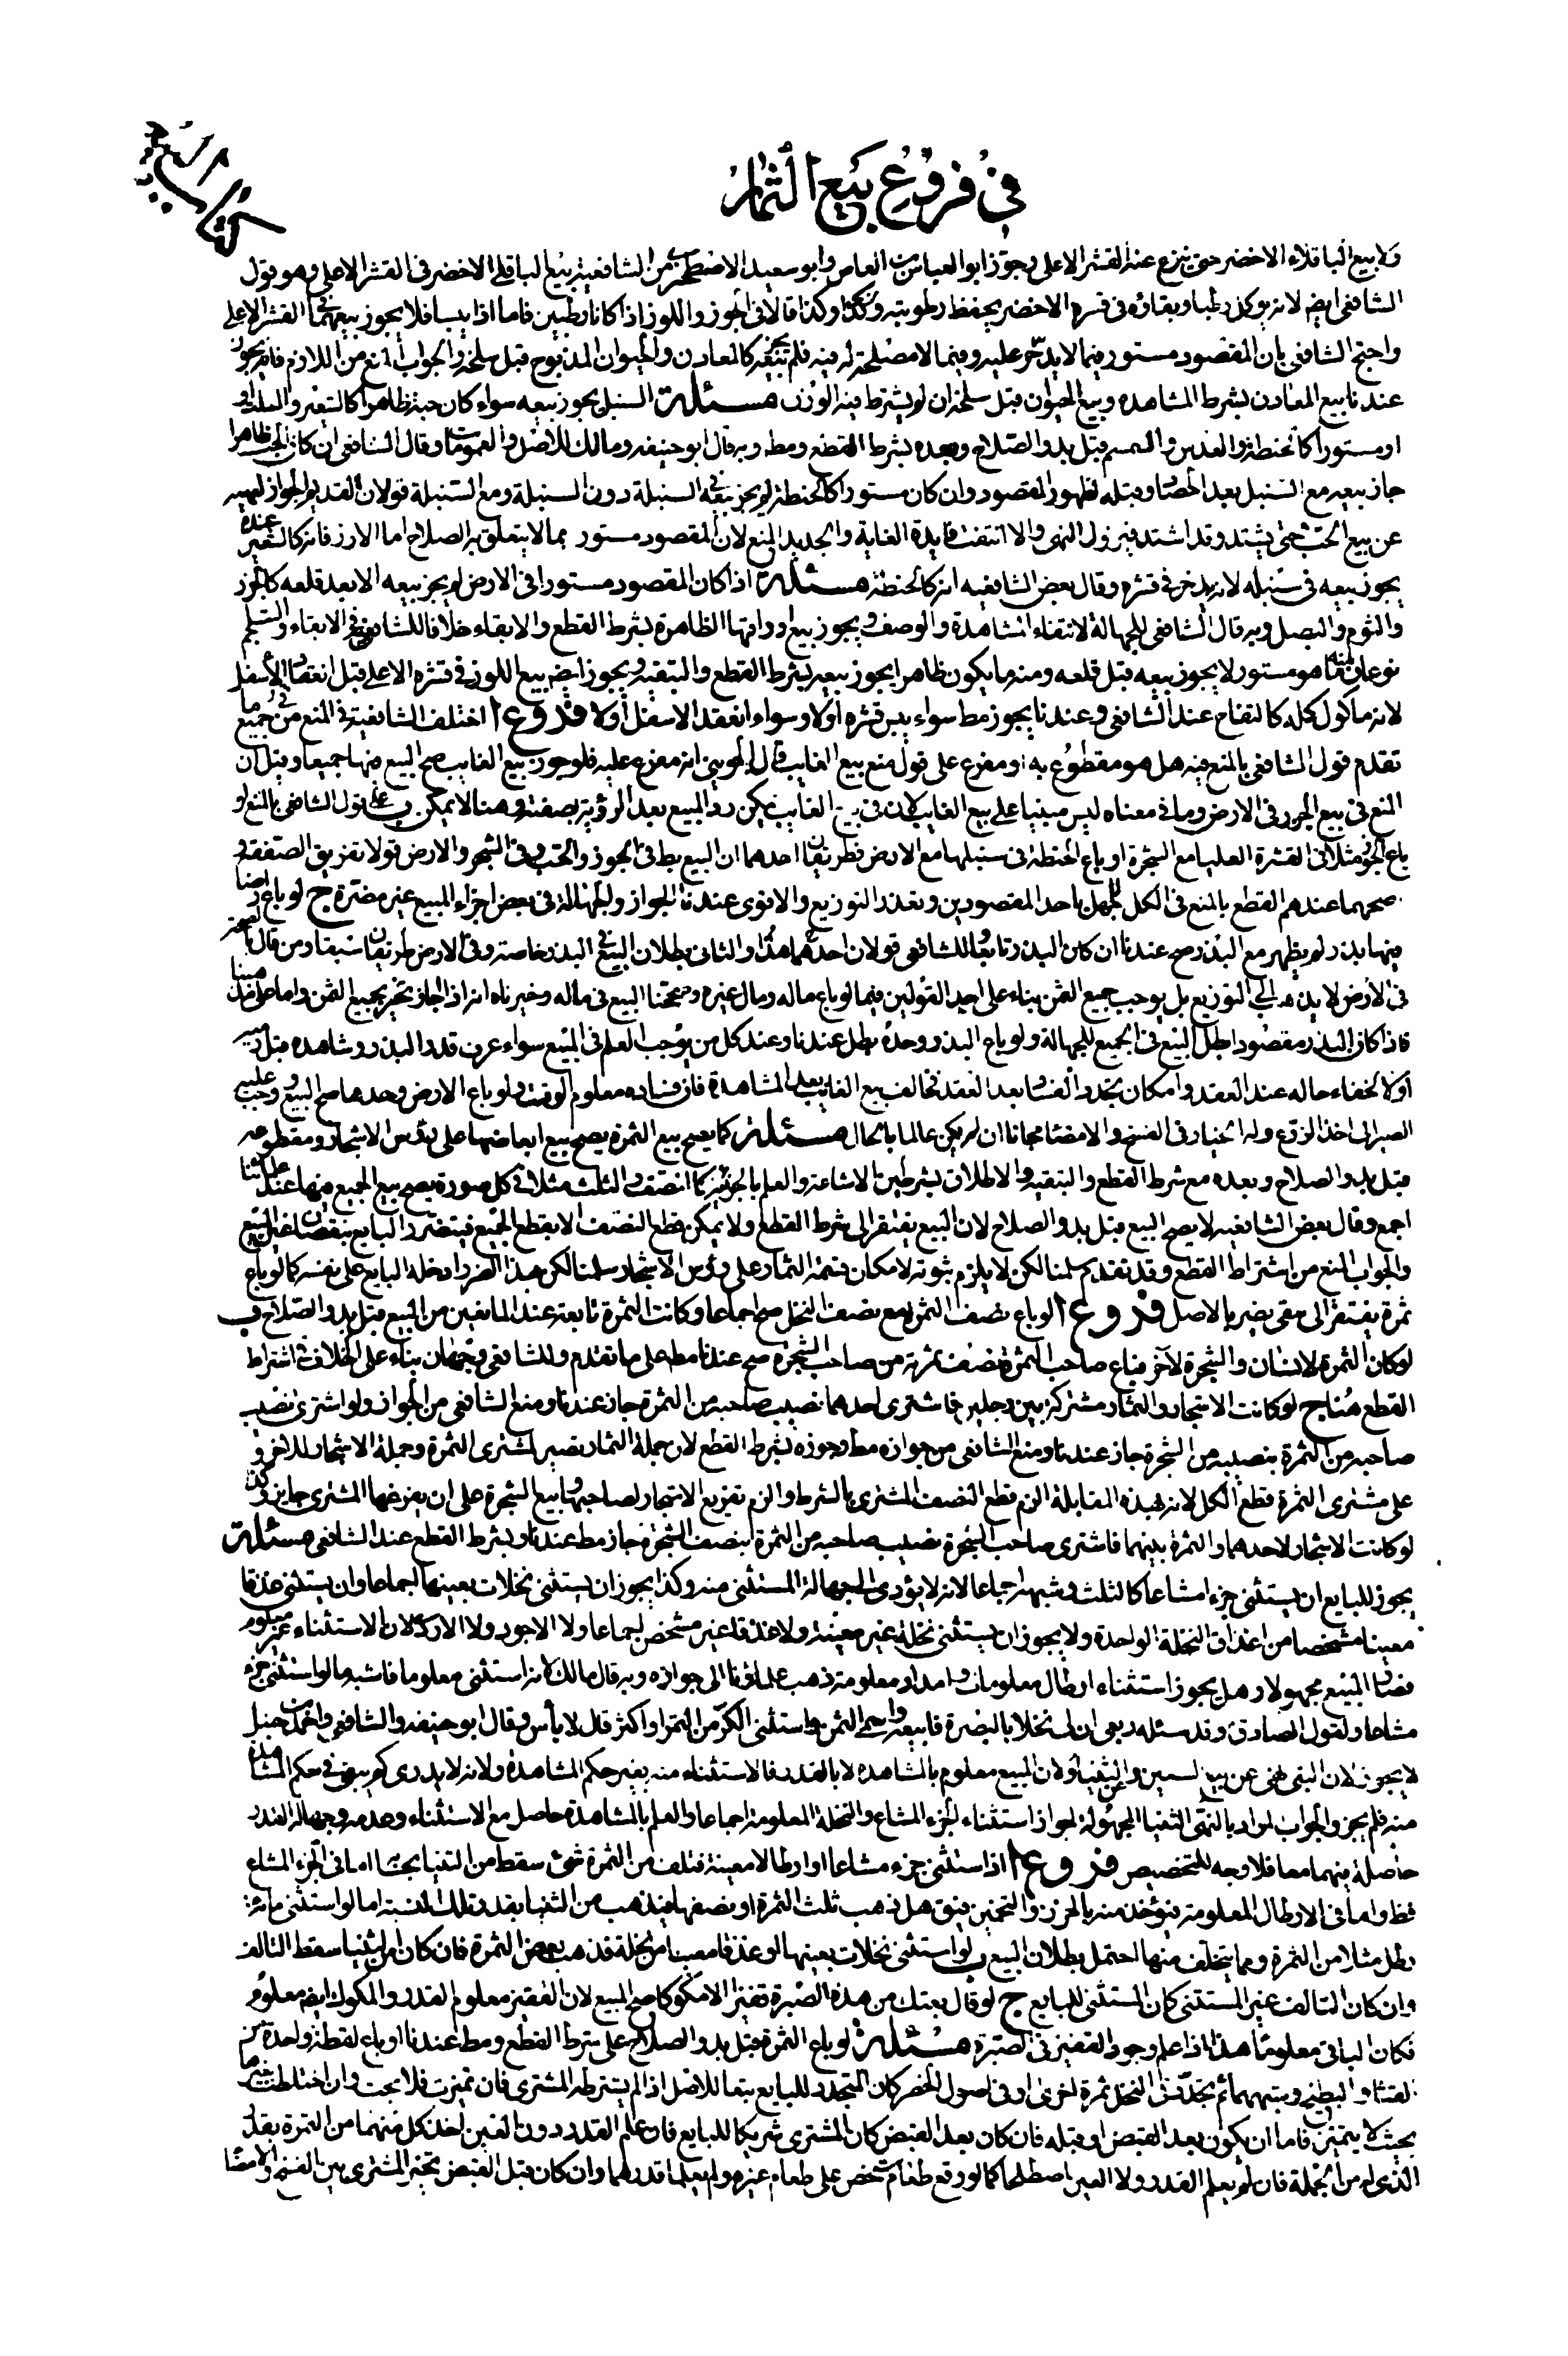 في فروع بيع الثمار
كتاب البيع
ولا بيع الباقلاء الاخضر حتى ينزع عنه القشر الاعلى وجوز ابو العباس بن القاص وابو سعيد الاصطخري من الشافعية بيع الباقلى الاخضر في القشر الاعلى وهو قول
الشافعي ايض لانه يوكل رطبا وبقاؤه في قشره الاخضر يحفظ رطوبته وكذا قالا في الجوز واللوز اذا كانا رطبين فاما اذا يبسا فلا يجوز بيعهما في القشر الاعلى
واحتج الشافعي بان المقصود مستور فيما لا يدخر عليه وفيما لا مصلحة له فيه فلم يجز بيعه كالمعادن والحيوان المذبوح قبل سلخه والجواب المنع من اللازم فانه يجوز
عندنا بيع المعادن بشرط المشاهده وبيع الحيوان قبل سلخه ان لم يشترط فيه الوزن مسئلة السنبل يجوز بيعه سواء كان حبه ظاهرا كالشعير والسلت او
او مستورا كالحنطة والعدس والسمسم قبل بدو الصلاح وبعده بشرط القطع ومط وبه قال ابو حنيفه ومالك للاصل والعمومات وقال الشافعي ان كان الحب ظاهرا
جاز بيعه مع السنبل بعد الحصاد وقبله لظهور المقصود وان كان مستورا كالحنطة لم يجز بيعه في السنبلة دون السنبلة ومع السنبلة قولان القديم الجواز لنهيه
عن بيع الحب حتى يشتد وقد اشتد فيزول النهي والا انتفت فايدة الغاية والجديد المنع لان المقصود مستور بما لا يتعلق به الصلاح اما الارز فانه كالشعير عنده
يجوز بيعه في سنبله لانه يدخر في قشره وقال بعض الشافعيه انه كالحنطة مسئلة اذا كان المقصود مستورا في الارض لم يجز بيعه الا بعد قلعه كالجزر
والثوم والبصل وبه قال الشافعي للجهالة لانتفاء المشاهدة والوصف ويجوز بيع اوراقها الظاهرة بشرط القطع والابقاء خلافا للشافعي في الابقاء والشلجم
نوعان منه ما هو مستور لا يجوز بيعه قبل قلعه ومنه ما يكون ظاهرا يجوز بيعه بشرط القطع والتبقيه ويجوز ايض بيع اللوز في قشره الاعلى قبل انعقاد الاسفل
لانه ماكول كله كالتفاح عند الشافعي وعندنا يجوز مط سواء يبس قشره او لا وسواء انعقد الاسفل او لا فروع ا اختلف الشافعية في المنع من في جميع ما
تقدم قول الشافعي بالمنع فيه هل هو مقطوع به او مفرع على قول منع بيع الغايب قال الجويني انه مفرع عليه فلو جوز بيع الغايب صح البيع فيها جميعا وقيل ان
المنع في بيع الجزر في الارض وما في معناه ليس مبنيا على بيع الغايب لان في بيع الغايب يمكن رد المبيع بعد الرؤية بصفته وهنا لا يمكن ب على قول الشافعي بالمنع لو
باع الجوز مثلا في القشرة العليا مع الشجرة او باع الحنطة في سنبلها مع الارض فطريقان احدهما ان البيع بط في الجوز والحب وفي الشجر والارض قولا تفريق الصفقة و
صحهما عندهم القطع بالمنع في الكل للجهل باحد المقصودين وتعذر التوزيع والاقوى عندنا الجواز والجهالة في بعض اجزاء المبيع غير مضرة ج لو باع ارضا
فيها بذر لم يظهر مع البذر صح عندنا ان كان البذر تابعا وللشافعي قولان احدهما هذا والثاني بطلان البيع في البذر خاصة وفي الارض طريقان سبقا ومن قال بالصحة
في الارض لا يذهب الى التوزيع بل يوجب جميع الثمن بناء على احد القولين فيما لو باع ماله ومال غيره وصححنا البيع في ماله وخيرناه انه اذا اجاز يخير بجميع الثمن واما على مذهبنا
فاذا كان البذر مقصودا بطل البيع في الجميع للجهالة ولو باع البذر وحده بطل عندنا وعند كل من يوجب العلم في المبيع سواء عرف قدر البذر وشاهده قبل
او لا لخفاء حاله عند العقد وامكان تجدد الفساد بعد العقد بخلاف بيع الغايب بعد المشاهدة فان فساده معلوم الوقت ولو باع الارض وحدها صح البيع ووجب عليه
الصبر الى اخذ الزرع وله الخيار في الفسخ والامضاء مجانا ان لم يكن عالما بالحال مسئلة كما يصح بيع الثمرة يصح بيع ابعاضها على رؤس الاشجار ومقطوعه
قبل بدو الصلاح وبعده مع شرط القطع والتبقيه والاطلاق بشرطين الاشاعة والعلم بالجزئية كالنصف والثلث مثلا في كل صورة يصح بيع الجميع فيها عند علمائنا
اجمع وقال بعض الشافعيه لا يصح البيع قبل بدو الصلاح لان البيع يفتقر الى شرط القطع ولا يمكن قطع النصف الا بقطع الجميع فيتضرر البايع بنقصان غير المبيع
والجواب المنع من اشتراط القطع وقد تقدم سلمنا لكن لا يلزم ثبوته لامكان قسمة الثمار على رؤس الاشجار سلمنا لكن هذا الضرر ادخله البايع على نفسه كما لو باع
ثمرة يفتقر الى سقي يضر بالاصل فروع ا لو باع نصف الثمرة مع نصف النخل صح اجماعا وكانت الثمرة تابعة عند المانعين من البيع قبل بدو الصلاح ب
لو كان الثمرة لانسان والشجرة لاخر فباع صاحب الثمرة نصف ثمرته من صاحب الشجرة صح عندنا مط على ما تقدم وللشافعي وجهان بناء على الخلاف في اشتراط
القطع هنا ج لو كانت الاشجار والثمار مشتركة بين رجلين فاشترى احدهما نصيب صاحبه من الثمرة جاز عندنا ومنع الشافعي من الجواز ولو اشترى نصيب
صاحبه من الثمرة بنصيبه من الشجرة جاز عندنا ومنع الشافعي من جوازه مط وجوزه بشرط القطع لان جملة الثمار تصير لمشتري الثمرة وجملة الاشجار للاخر و
على مشتري الثمرة قطع الكل لانه بهذه المقابلة الزم قطع النصف المشترى بالشرط والزم تفريغ الاشجار لصاحبها وبيع الشجرة على ان يفرغها المشتري جايز وكذا
لو كانت الاشجار لاحدهما والثمرة بينهما فاشترى صاحب الشجرة نصيب صاحبه من الثمرة بنصف الشجرة جاز مط عندنا وبشرط القطع عند الشافعي مسئلة
يجوز للبايع ان يستثني جزءا مشاعا كالثلث وشبهه اجماعا لانه لا يؤدي الى جهالة المستثنى منه وكذا يجوز ان يستثني نخلات بعينها اجماعا وان يستثني عذقا
معينا مشخصا من اعذاق النخلة الواحدة ولا يجوز ان يستثني نخلة غير معينة ولا عذقا غير مشخص اجماعا ولا الاجود ولا الاردى لان الاستثناء غير معلوم
فصار المبيع مجهولا وهل يجوز استثناء ارطال معلومات وامداد معلومة ذهب علماؤنا الى جوازه وبه قال مالك لانه استثنى معلوما فاشبه ما لو استثنى جزء
مشاعا ولقول الصادق وقد سئله ربعي ان لي نخلا بالبصرة فابيعه واسمى الثمن واستثني الكر من التمر او اكثر قال لا بأس وقال ابو حنيفه والشافعي واحمد بن حنبل
لا يجوز لان النبي نهى عن بيع السنين وعن الثنيا ولان المبيع معلوم بالمشاهدة لا بالقدر فالاستثناء منه يغير حكم المشاهدة ولانه لا يدري كم يبقى في حكم المشاهدة
منه فلم يجز والجواب المراد بالنهي الثنيا المجهولة لجواز استثناء الجزء المشاع والنخلة المعلومة اجماعا والعلم بالمشاهدة حاصل مع الاستثناء وعدمه وجهالة القدر
حاصلة فيهما معا فلا وجه للتخصيص فروع ا اذا استثنى جزء مشاعا او ارطالا معينة فتلف من الثمرة شئ سقط من الثنيا بحسابه اما في الجزء المشاع
فظ واما في الارطال المعلومة فيؤخذ منه بالحزر والتخمين فيق هل ذهب ثلث الثمرة او نصفها فيذهب من الثنيا بقدر تلك النسبة اما لو استثنى مائة
رطل مثلا من الثمرة ومما يتخلف منها احتمل بطلان البيع ب لو استثنى نخلات بعينها او عذقا معينا من نخلة فذهب بعض الثمرة فان كان من الثنيا سقط التالف
وان كان التالف غير المستثنى كان المستثنى للبايع ج لو قال بعتك من هذه الصبرة قفيزا الا مكوكا صح البيع لان القفيز معلوم القدر والمكوك ايض معلوم
فكان الباقي معلوما هذا اذا علم وجود القفيز في الصبرة مسئلة لو باع الثمرة قبل بدو الصلاح على شرط القطع ومط عندنا او باع لقطة واحدة من
القثاء والبطيخ وشبههما ثم تجدد في النخل ثمرة اخرى او في اصول الخضر كان المتجدد للبايع تبعا للاصل اذا لم يشترطه المشتري فان تميزت فلا بحث وان اختلطت بغيرها
بحيث لا يتميز فاما ان يكون بعد القبض او قبله فان كان بعد القبض كان المشتري شريكا للبايع فان علم القدر دون العين اخذ كل منهما من الثمرة بقدر
الذي له من الجملة فان لم يعلم القدر ولا العين اصطلحا كما لو وقع طعام شخص على طعام غيره ولم يعلما قدرهما وان كان قبل القبض تخير المشتري بين الفسخ والامضاء